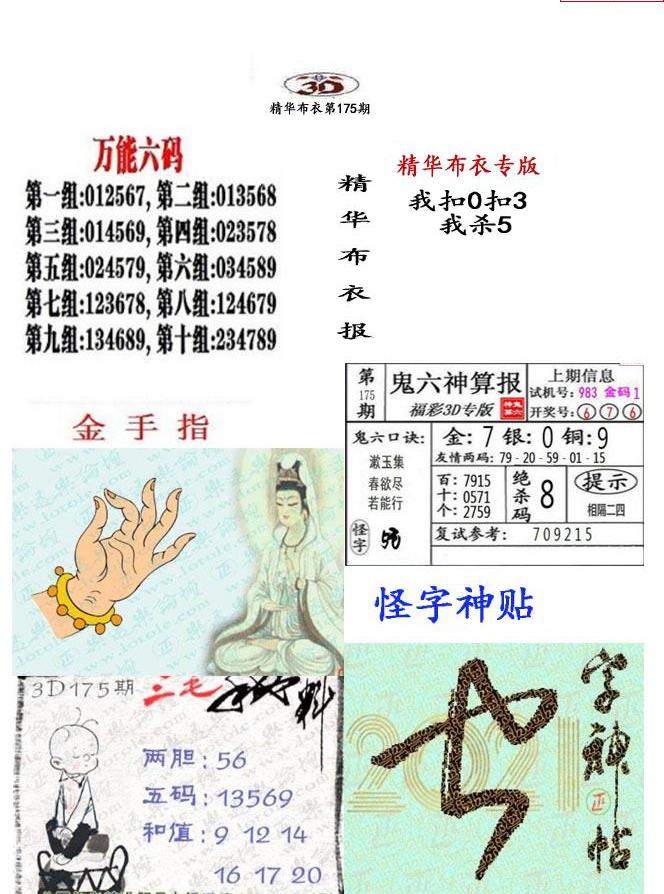 3D
精华布衣第175期
万能六码
第一组:012567, 第二组:013568
第三组:014569, 第四组:023578
第五组:024579, 第六组:034589
第七组:123678, 第八组:124679
第九组:134689, 第十组:234789
精华布衣报
精华布衣专版
我扣0扣3
我杀5
第175期
鬼六神算报
福彩3D专版
上期信息
试机号: 983 金码1
开奖号: 6 7 6
鬼六口诀:
漱玉集
春欲尽
若能行
怪字
金: 7 银: 0 铜: 9
友情两码: 79-20-59-01-15
百: 7915
十: 0571
个: 2759
绝杀码 8
提示
相隔二四
复试参考: 709215
金手指
怪字神贴
3D175期
三毛
两胆: 56
五码: 13569
和值: 9 12 14
16 17 20
2021
字神帖